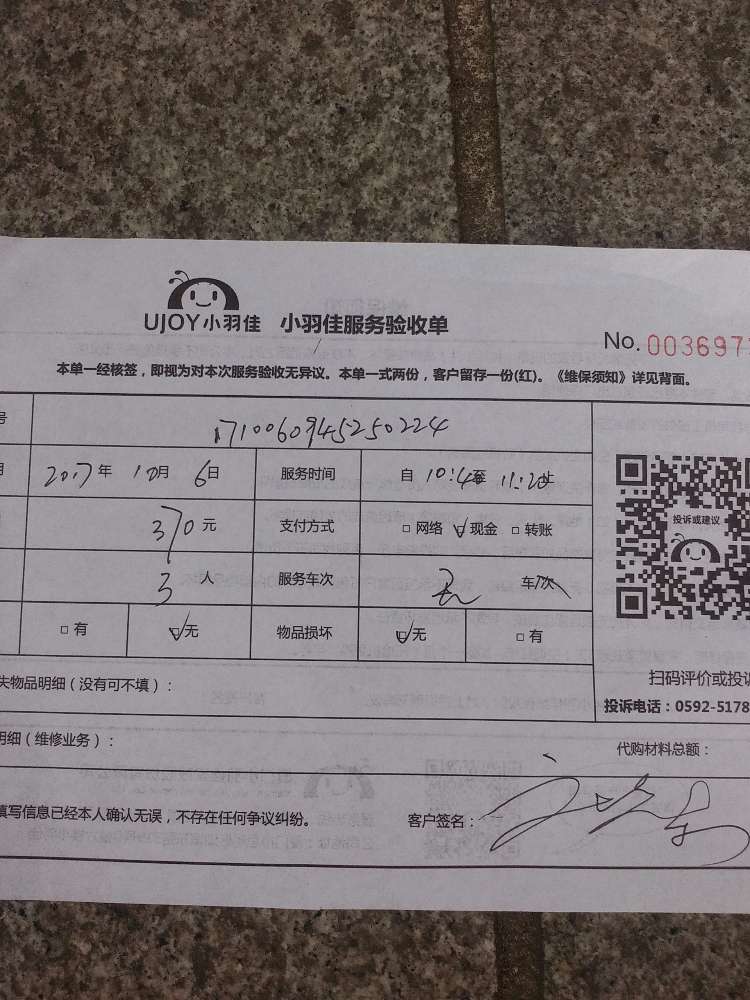 UJOY小羽佳 小羽佳服务验收单
No. 003697
本单一经核签，即视为对本次服务验收无异议。本单一式两份，客户留存一份(红)。《维保须知》详见背面。
号 1710060945250224
2017年 10月 6日 服务时间 自 至 11:20止
370元 支付方式 □网络 ☑现金 □转账
投诉或建议
3人 服务车次 车/次
□有 ☑无 物品损坏 ☑无 □有
扫码评价或投诉
失物品明细（没有可不填）：
投诉电话：0592-5178
明细（维修业务）：
代购材料总额：
填写信息已经本人确认无误，不存在任何争议纠纷。 客户签名：